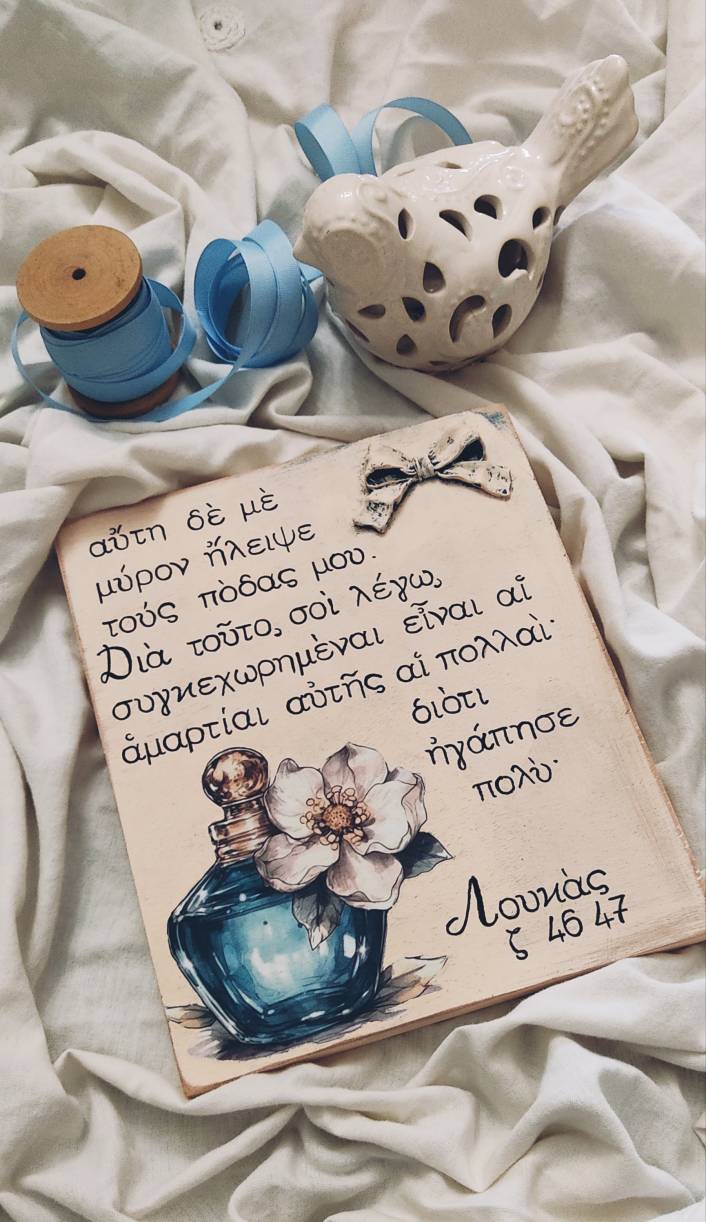 αὔτη δὲ μὲ
μύρον ἤλειψε
τούς πὸδας μου.
Διὰ τοῦτο, σοὶ λέγω,
συγκεχωρημὲναι εἶναι αἵ
ἁμαρτίαι αὐτῆς αἵ πολλαὶ·
διὸτι
ἠγάπησε
πολὺ·
Λουκὰς
ζ 46 47